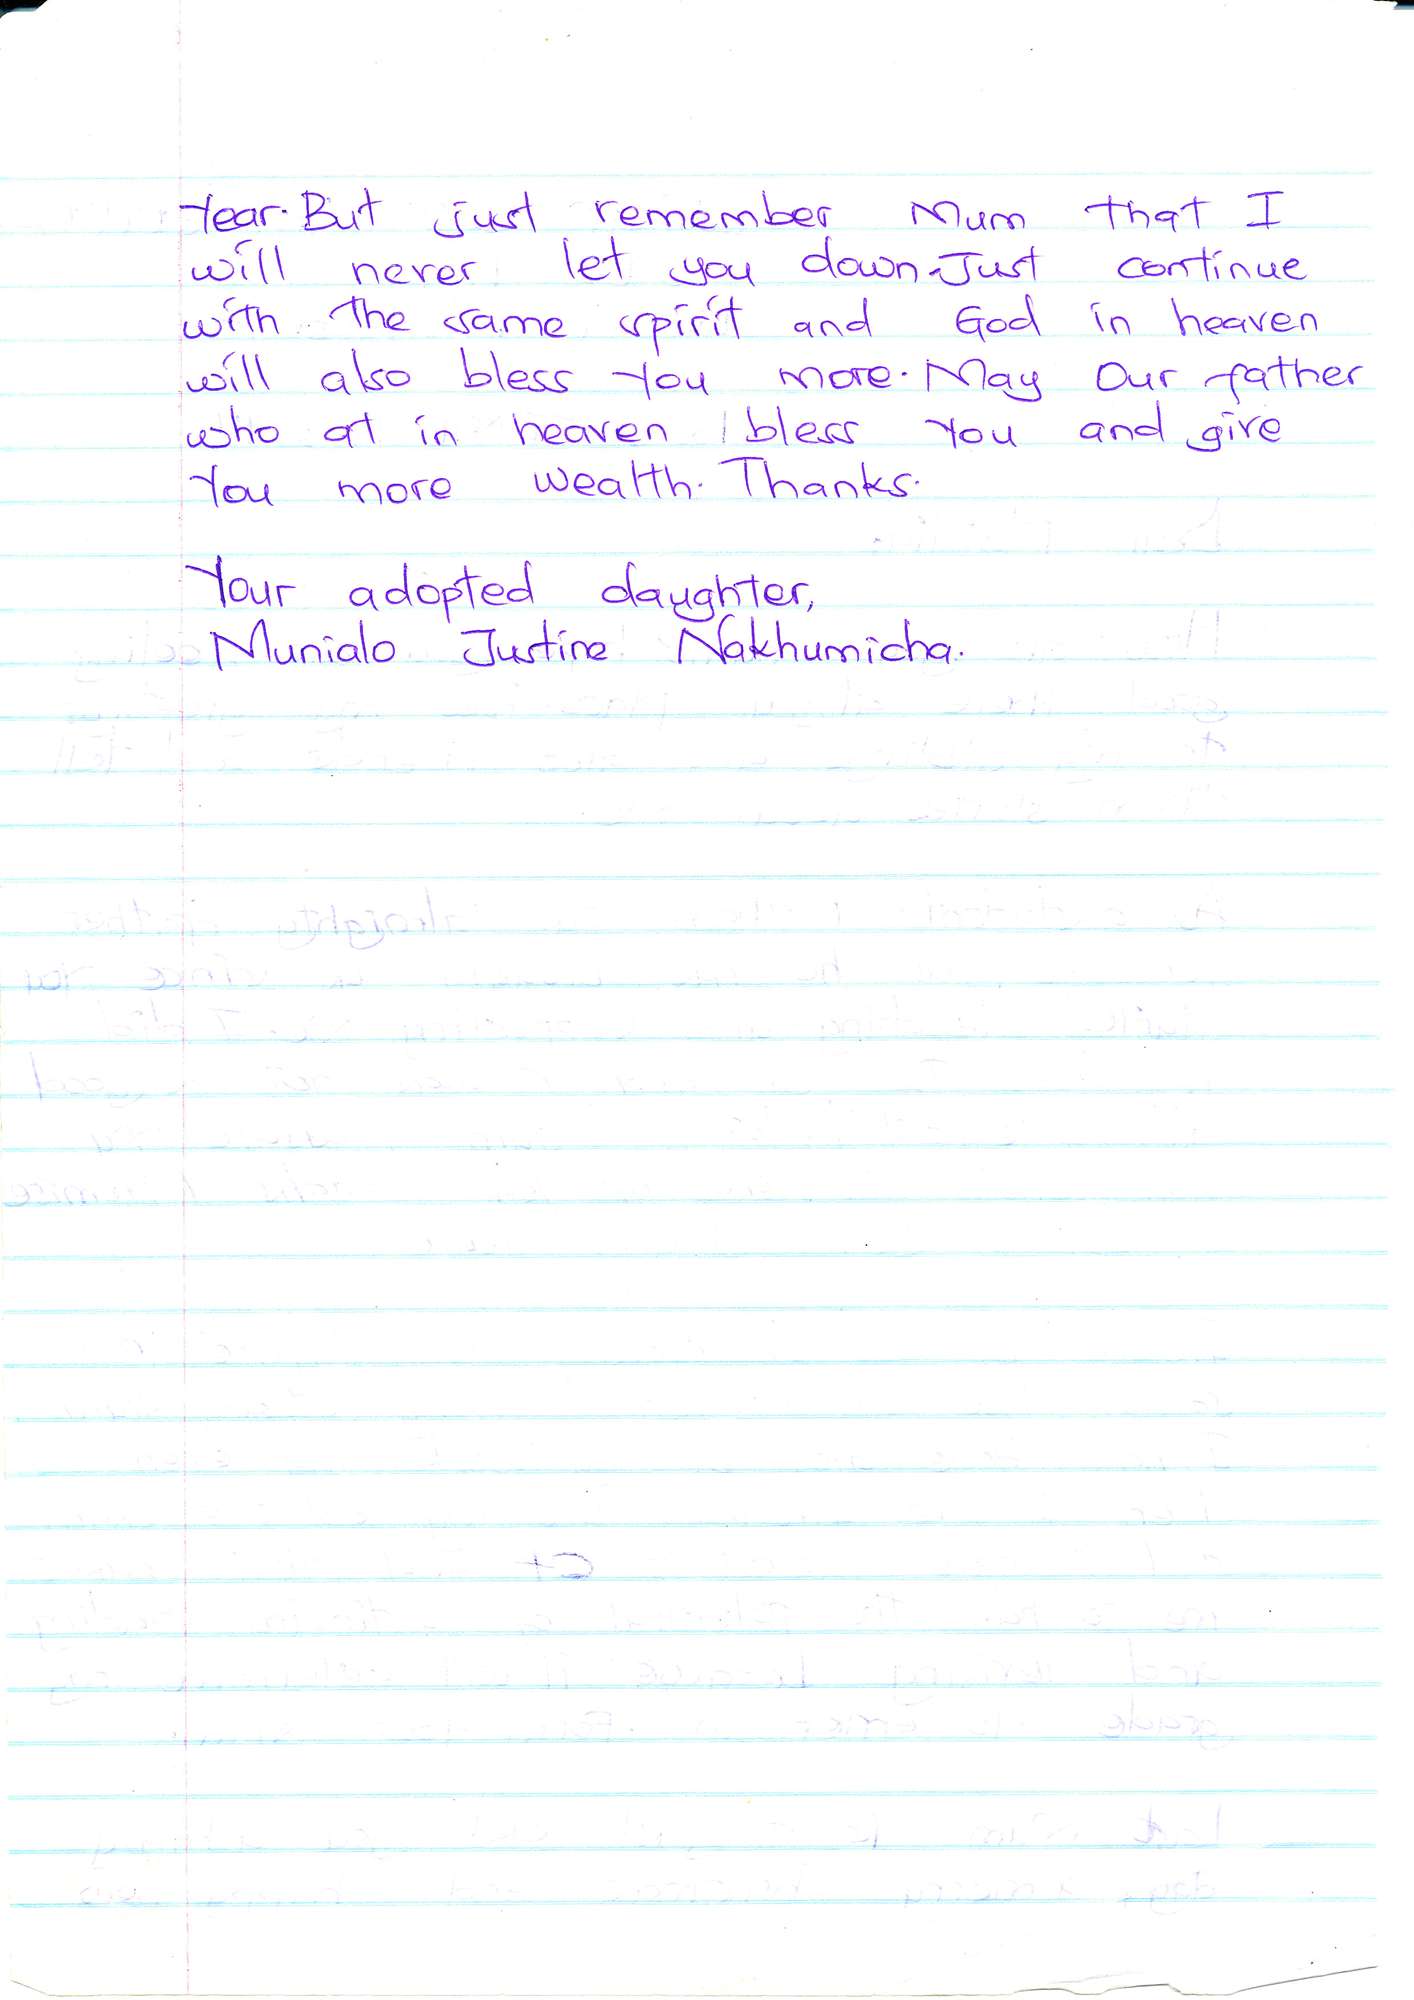 Year. But just remember Mum that I
will never let you down. Just continue
with the same spirit and God in heaven
will also bless you more. May Our father
who at in heaven bless you and give
You more wealth. Thanks.
Your adopted daughter,
Munialo Justine Nakhumicha.